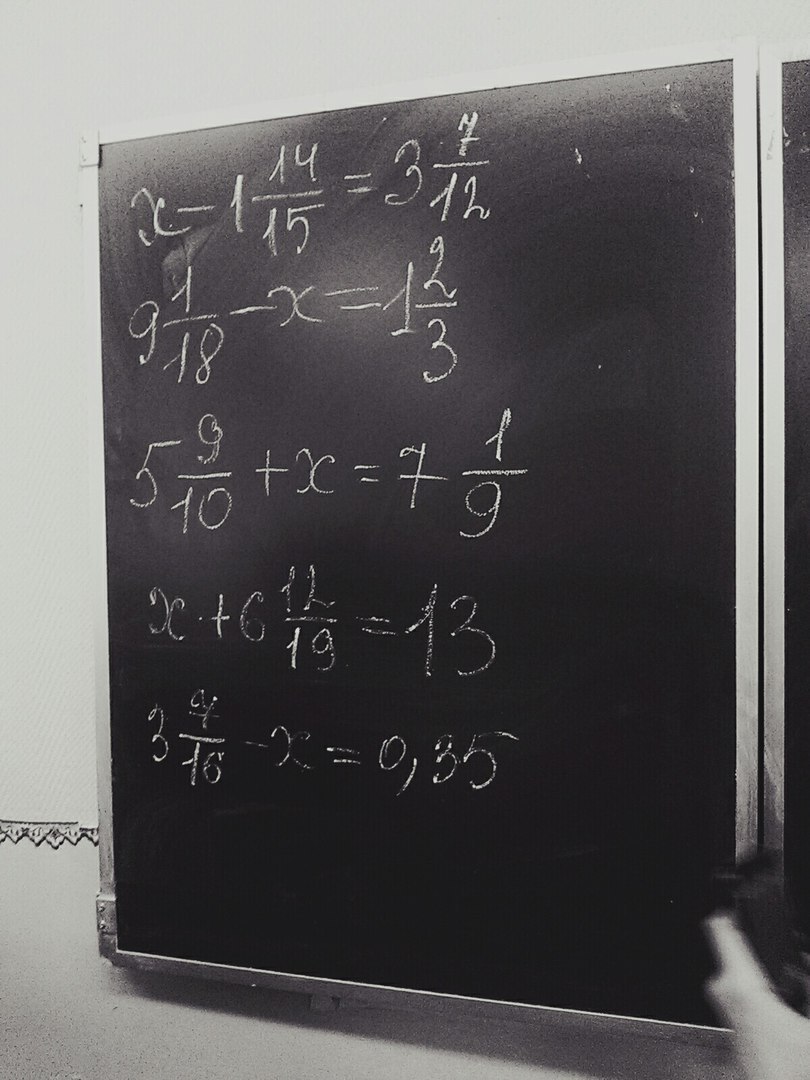 x - 1 14/15 = 3 7/12
9 1/18 - x = 1 2/3
5 9/10 + x = 7 1/9
x + 6 12/19 = 13
3 7/16 - x = 0,35